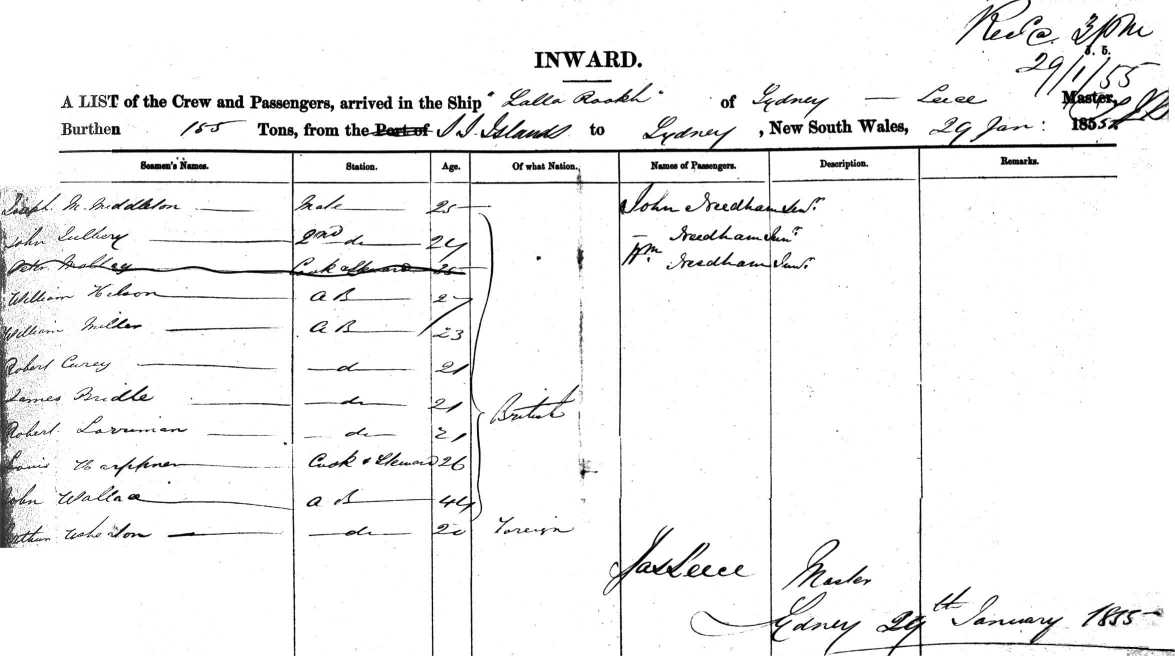 Recd @ 3 pm
29/1/55
INWARD.
A LIST of the Crew and Passengers, arrived in the Ship "Lalla Rookh" of Sydney — Leece Master,
Burthen 155 Tons, from the Port of S. S. Islands to Sydney, New South Wales, 29 Jan: 1855
Seamen's Names. Station. Age. Of what Nation. Names of Passengers. Description. Remarks.
Joseph M. Middleton Mate 25 John Needham Senr.
John 2nd do 24 — Needham Junr.
Cook & Steward 25 Wm. Needham Junr.
William A B 27
William Miller A B 23
Robert Carey do 21
James Bridle do 21 British
Robert Lorriman do 21
Louis Cook & Steward 26
John Wallace A B 44
do 20 Foreign
Jas Leece Master
Sydney 29th January 1855